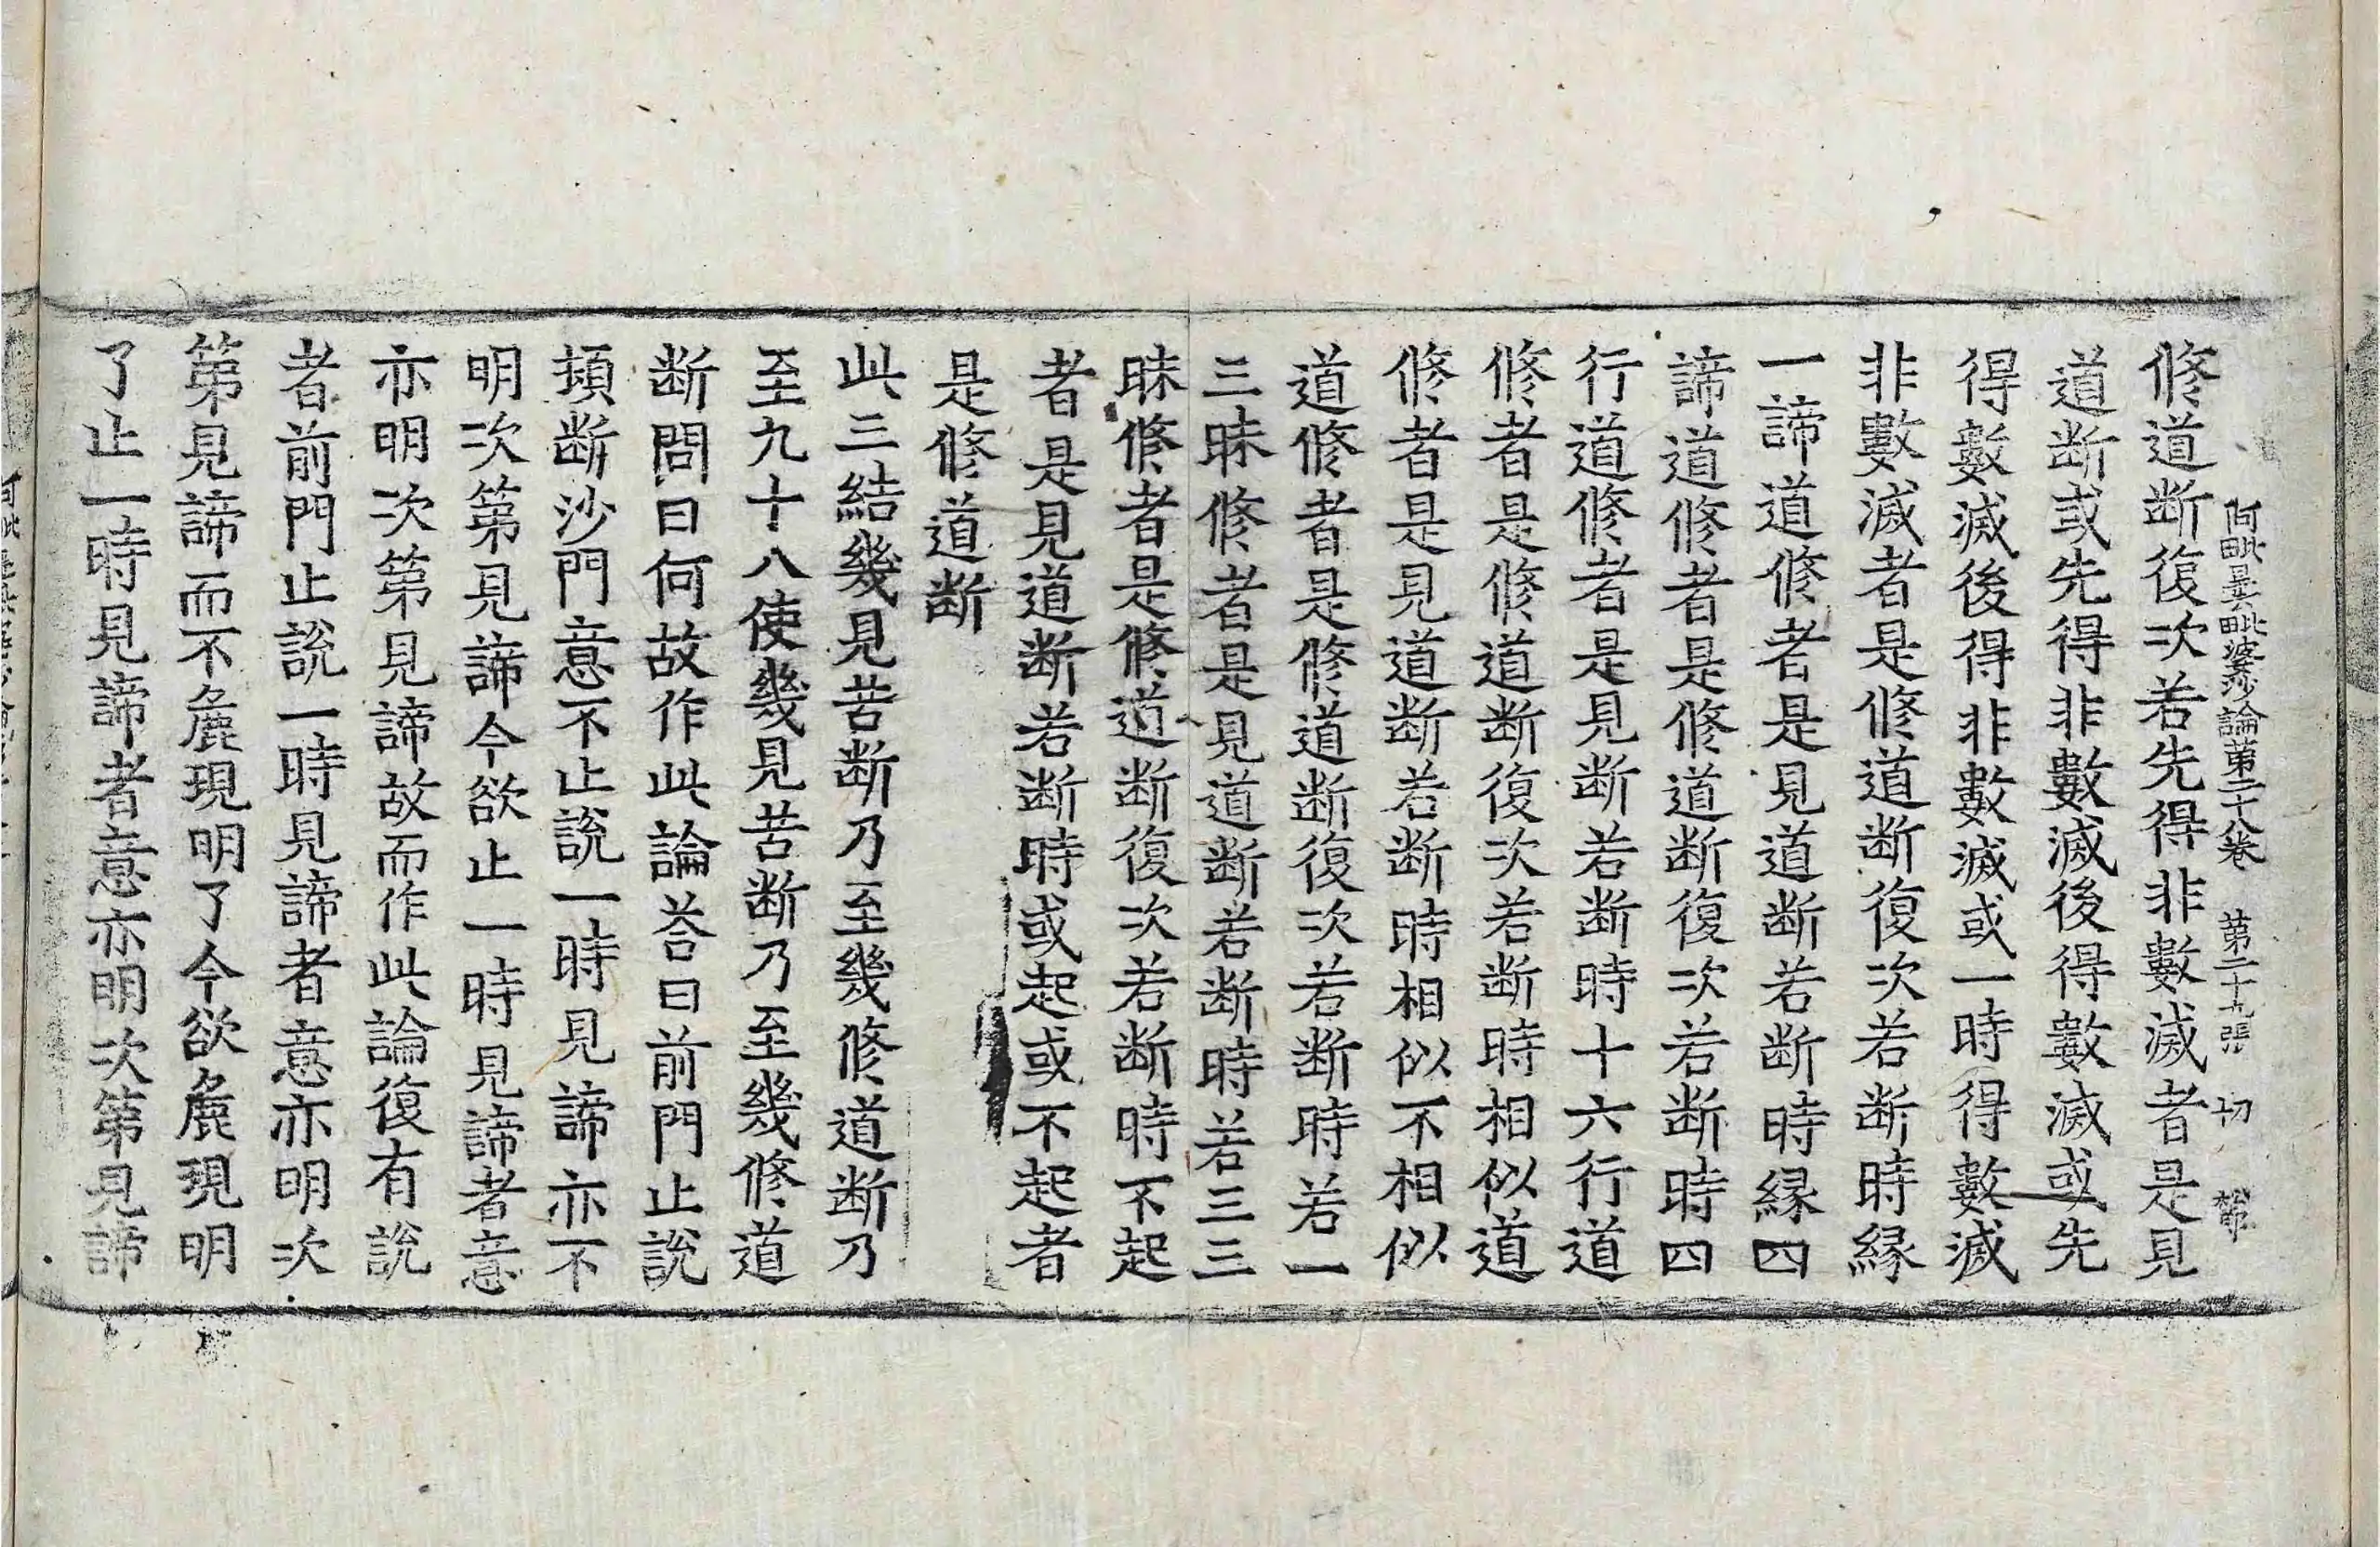 阿毗曇毗婆沙論第二十八卷　第二十九張　切
修道断復次若先得非數滅者是見
道断或先得非數滅後得數滅或先
得數滅後得非數滅或一時得數滅
非數滅者是修道断復次若断時縁
一諦道修者是見道断若断時縁四
諦道修者是修道断復次若断時四
行道修者是見断若断時十六行道
修者是修道断復次若断時相似道
修者是見道断若断時相似不相似
道修者是修道断復次若断時若一
三昧修者是見道断若断時若三三
昧修者是修道断復次若断時不起
者是見道断若断時或起或不起者
是修道断
此三結幾見苦断乃至幾修道断乃
至九十八使幾見苦断乃至幾修道
断問曰何故作此論荅曰前門止說
頞断沙門意不止說一時見諦亦不
明次第見諦今欲止一時見諦者意
亦明次第見諦故而作此論復有說
者前門止說一時見諦者意亦明次
第見諦而不麁現明了今欲麁現明
了止一時見諦者意亦明次第見諦